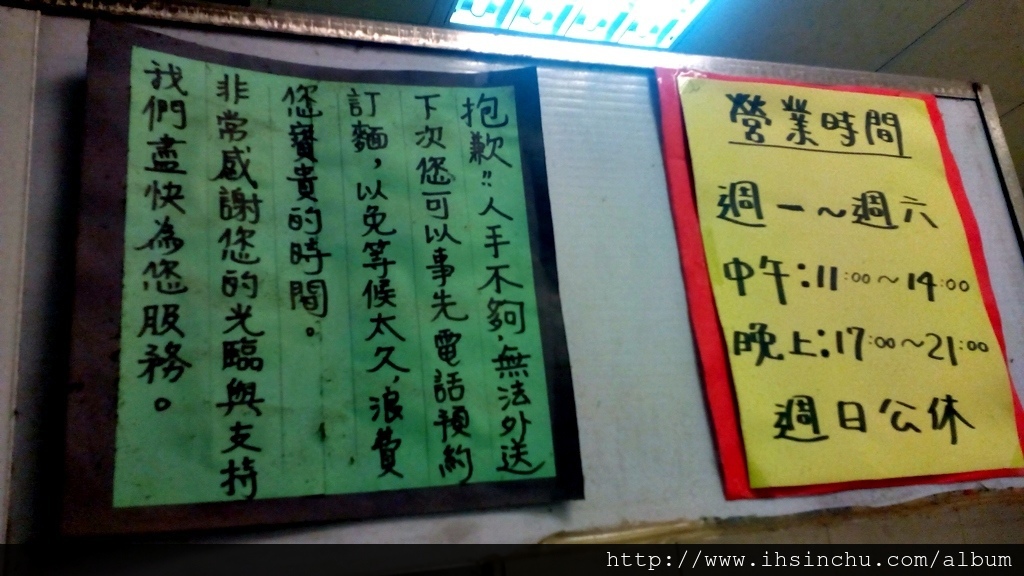 抱歉!!人手不夠,無法外送
下次您可以事先電話預約
訂麵,以免等候太久,浪費
您寶貴的時間。
非常感謝您的光臨與支持
我們盡快為您服務。
營業時間
週一~週六
中午:11:00~14:00
晚上:17:00~21:00
週日公休
http://www.ihsinchu.com/album